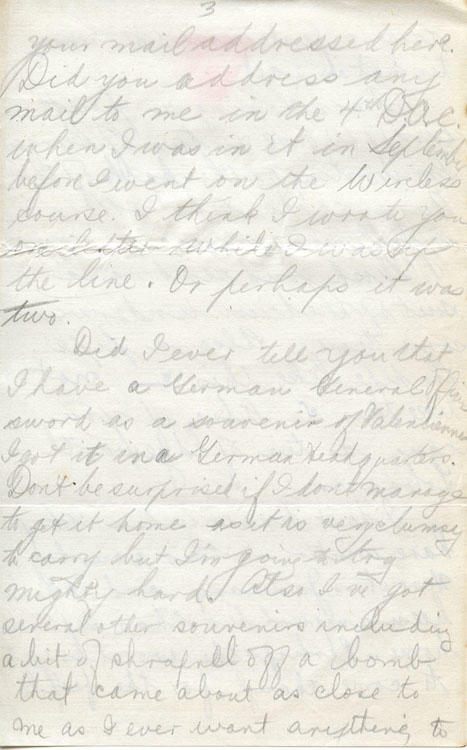 3
your mail addressed here.
Did you address any
mail to me in the 4th D.A.C.
when I was in it in September
before I went on the Wireless
course. I think I wrote you
one letter while I was up
the line. Or perhaps it was
two.
Did I ever tell you that
I have a German General Officer
sword as a souvenir of Valenciennes
I got it in a German Headquarters.
Dont be surprised if I dont manage
to get it home as it is very clumsy
to carry but I'm going to try
mighty hard. Also I've got
several other souvenirs including
a bit of shrapnell off a bomb
that came about as close to
me as I ever want anything to